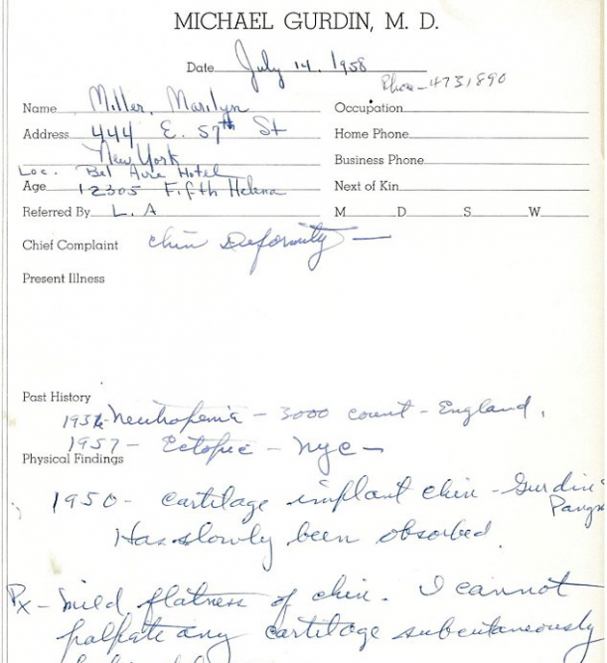 MICHAEL GURDIN, M. D.
Date July 14, 1958
Phone - 4731890
Name Miller, Marilyn Occupation
Address 444 E. 57th St Home Phone
New York Business Phone
Loc. Bel Aire Hotel
Age 12305 Fifth Helena Next of Kin
Referred By L. A M D S W
Chief Complaint chin Deformity —
Present Illness
Past History
Neutropenia - 3000 count - England.
1957 - Ectopic - NYC -
Physical Findings
1950 - cartilage implant chin - Gurdin
Has slowly been absorbed.
Px - mild flatness of chin. I cannot
palpate any cartilage subcutaneously